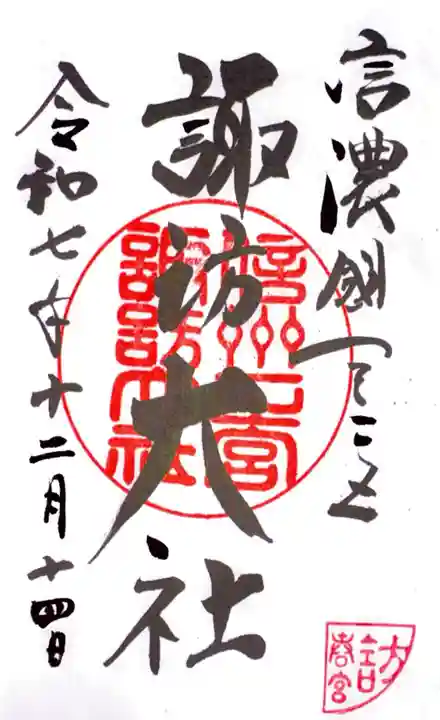 信濃國一之宮
諏訪大社
令和七年十二月十四日
信州一宮
諏訪大社
春宮